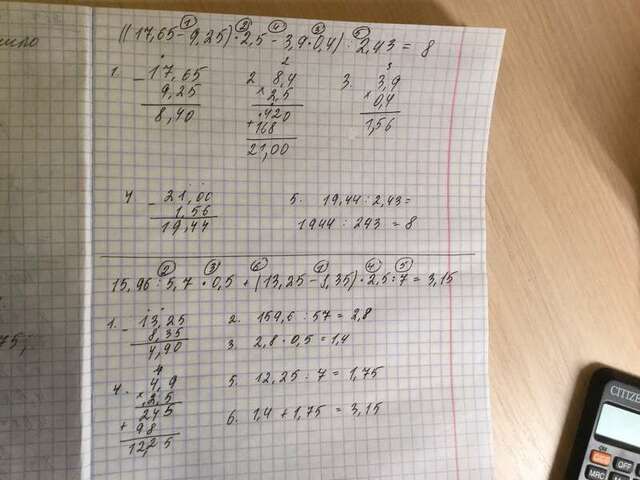 шло
① ② ④ ③ ⑤
((17,65 - 9,25) · 2,5 - 3,9 · 0,4) : 2,43 = 8
1. - 17,65
9,25
8,40
2
2. 8,4
× 2,5
420
+ 168
21,00
3
3. 3,9
× 0,4
1,56
4 - 21,00
1,56
19,44
5. 19,44 : 2,43 =
1944 : 243 = 8
② ③ ⑥ ① ④ ⑤
15,96 : 5,7 · 0,5 + (13,25 - 8,35) · 2,5 : 7 = 3,15
1. - 13,25
8,35
4,90
2. 159,6 : 57 = 2,8
3. 2,8 · 0,5 = 1,4
4
4. 4,9
× 2,5
245
+ 98
12,25
5. 12,25 : 7 = 1,75
6. 1,4 + 1,75 = 3,15
75;
CITIZE
ON
OFF
MRC